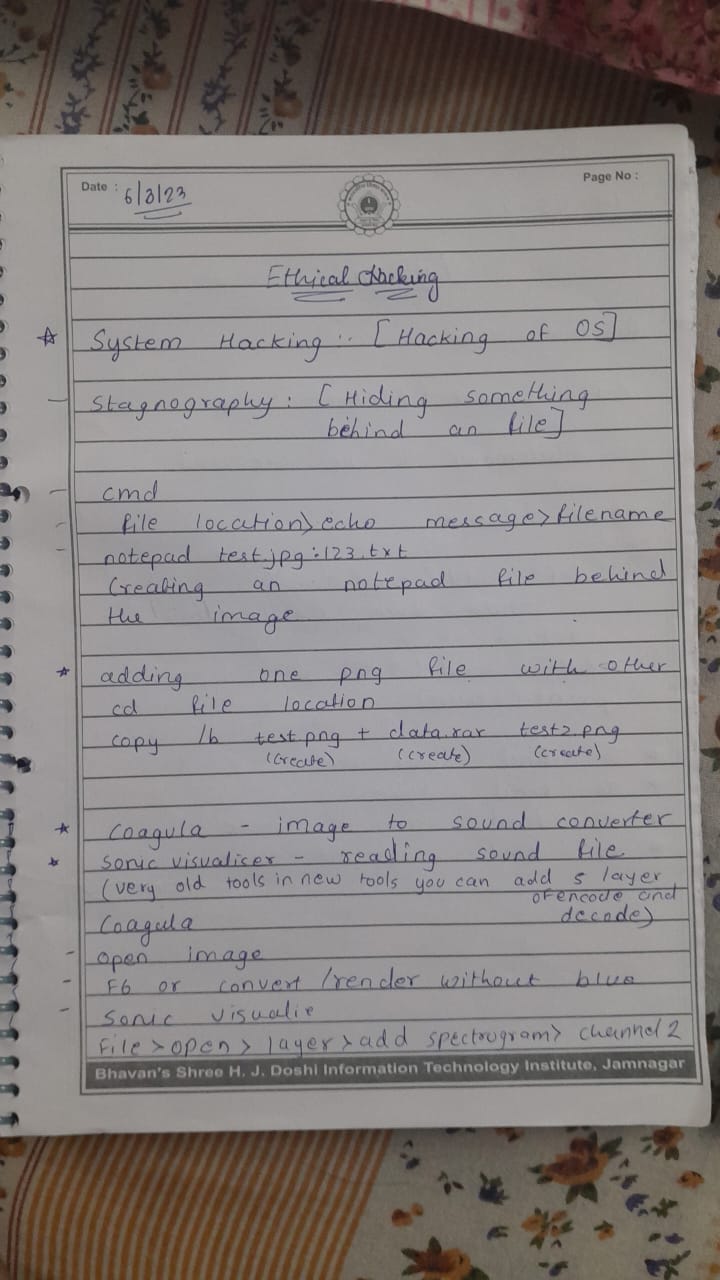 Date : 6/3/23
Page No :
Ethical Hacking
☆ System Hacking :- [Hacking of OS]
- Stagnography : [Hiding something
behind an file]
- cmd
- file location> echo message> filename
- notepad test.jpg:123.txt
Creating an notepad file behind
the image
★ adding one png file with other
cd file location
copy /b test.png + data.rar test2.png
(create) (create) (create)
★ Coagula - image to sound converter
★ Sonic visualiser - reading sound file
(very old tools in new tools you can add 5 layer
of encode and
Coagula decode)
- open image
- F6 or convert /render without blue
- Sonic visualie
File > open > layer > add spectrogram> channel 2
Bhavan's Shree H. J. Doshi Information Technology Institute, Jamnagar